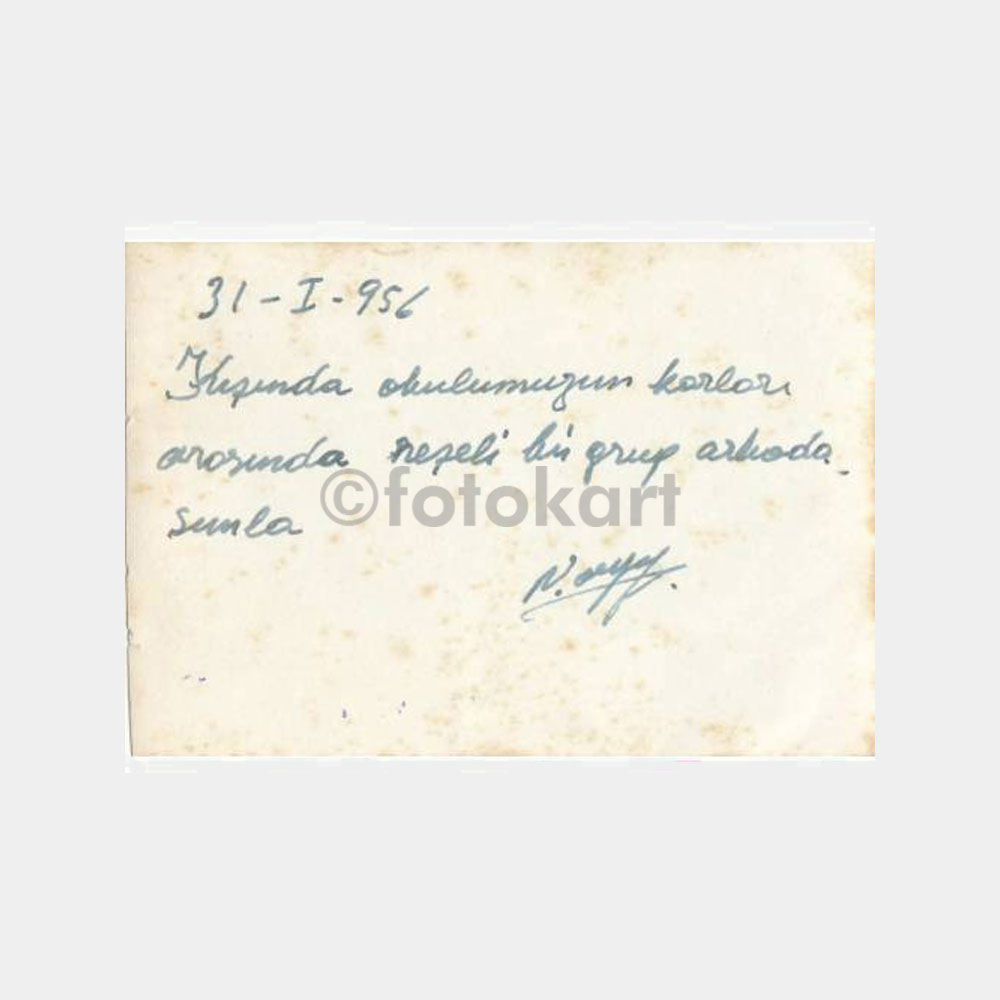 31-I-956
Kışında okulumuzun karları
arasında neşeli bir grup arkada_
şımla
©fotokart